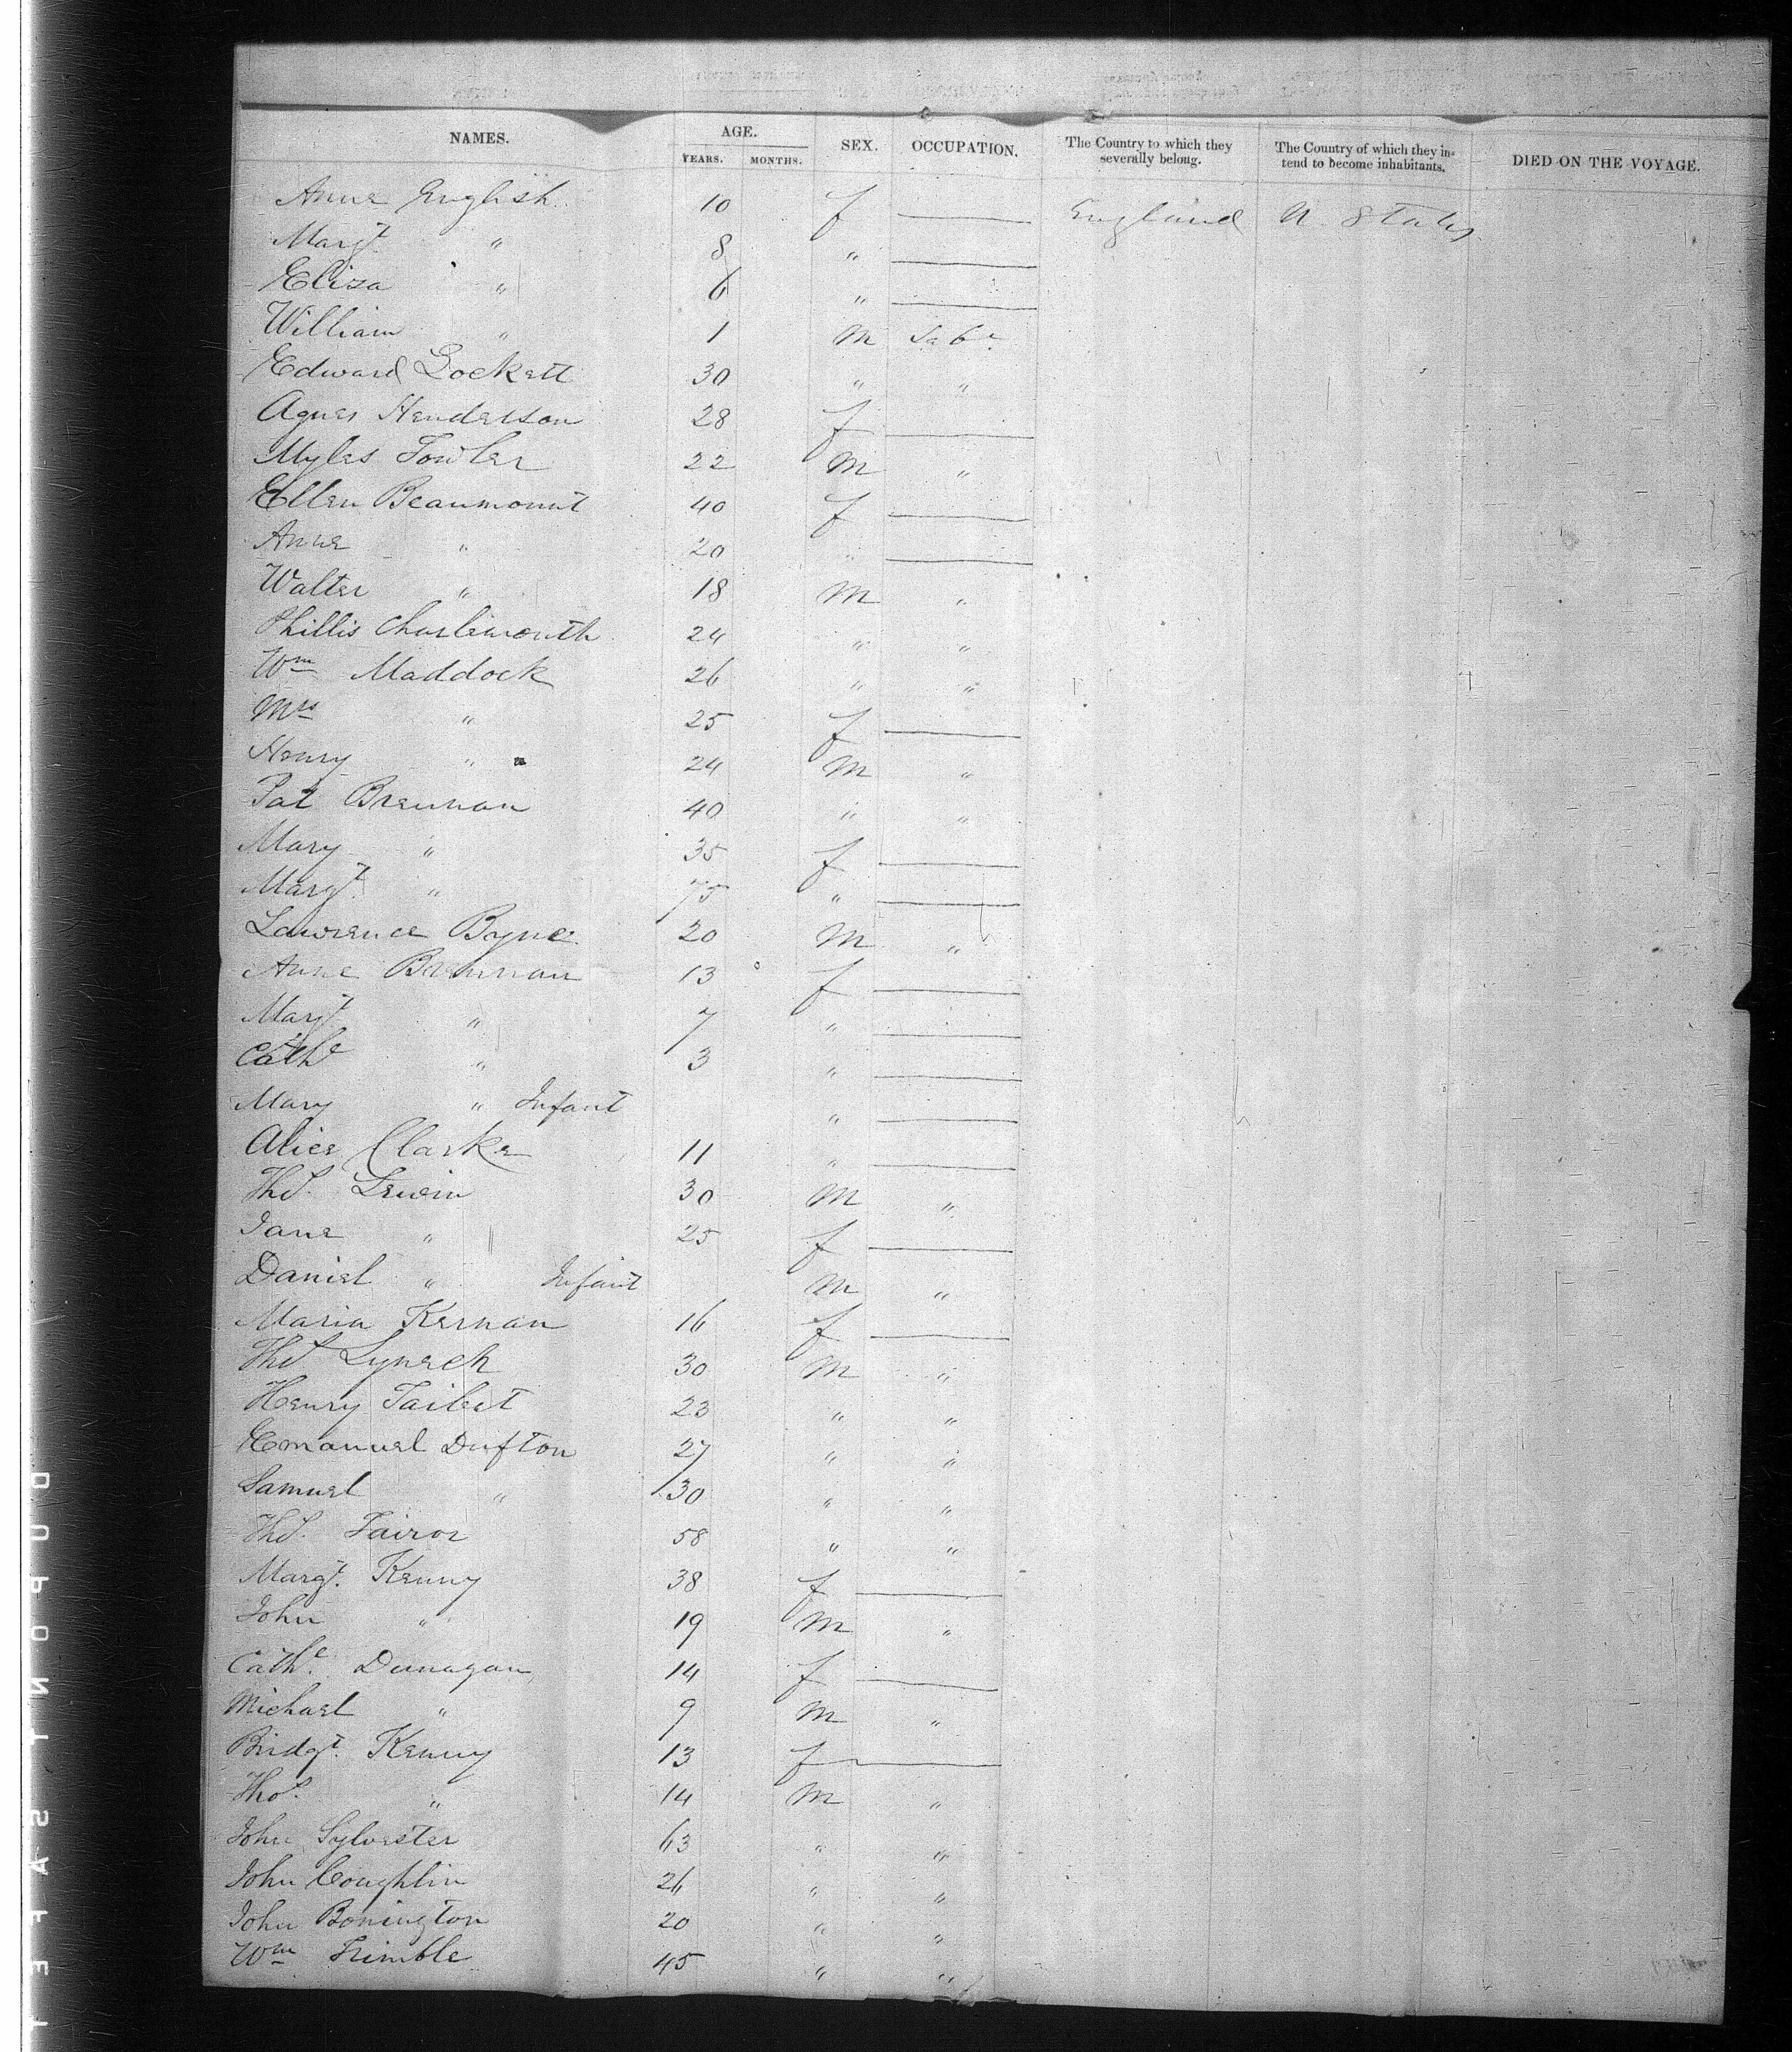 NAMES. AGE. YEARS. MONTHS. SEX. OCCUPATION. The Country to which they severally belong. The Country of which they intend to become inhabitants. DIED ON THE VOYAGE.
Anne English 10 f — England U. States
Margt " 8 " —
Eliza " 6 " —
William " 1 m Labr
Edward Lockett 30 " "
Agnes Henderson 28 f —
Myles Fowler 22 m "
Ellen Beaumount 40 f —
Anne " 20 " —
Walter " 18 m "
Phillis 24 " "
Wm Maddock 26 " "
Mrs " 25 f —
Henry " 24 m "
Pat Brennan 40 " "
Mary " 35 f —
Margt " 75 " —
Lawrence Byne 20 m "
Anne Brennan 13 f —
Margt " 7 " —
Cathe " 3 " —
Mary " Infant " —
Alice Clarke 11 " —
Thos Lewin 30 m "
Jane " 25 f —
Daniel " Infant m "
Maria Kernan 16 f —
Thos Lynch 30 m "
Henry 23 " "
Emanuel Dufton 27 " "
Samuel " 30 " "
Thos. 58 " "
Margt. Kenny 38 f —
John " 19 m "
Cathe. Dunagan 14 f —
Michael " 9 m "
Bridgt. Kenny 13 f —
Thos. " 14 m "
John Sylvester 63 " "
John Coughlin 26 " "
John Bonington 20 " "
Wm Trimble 45 " "
DUPONT SAFET